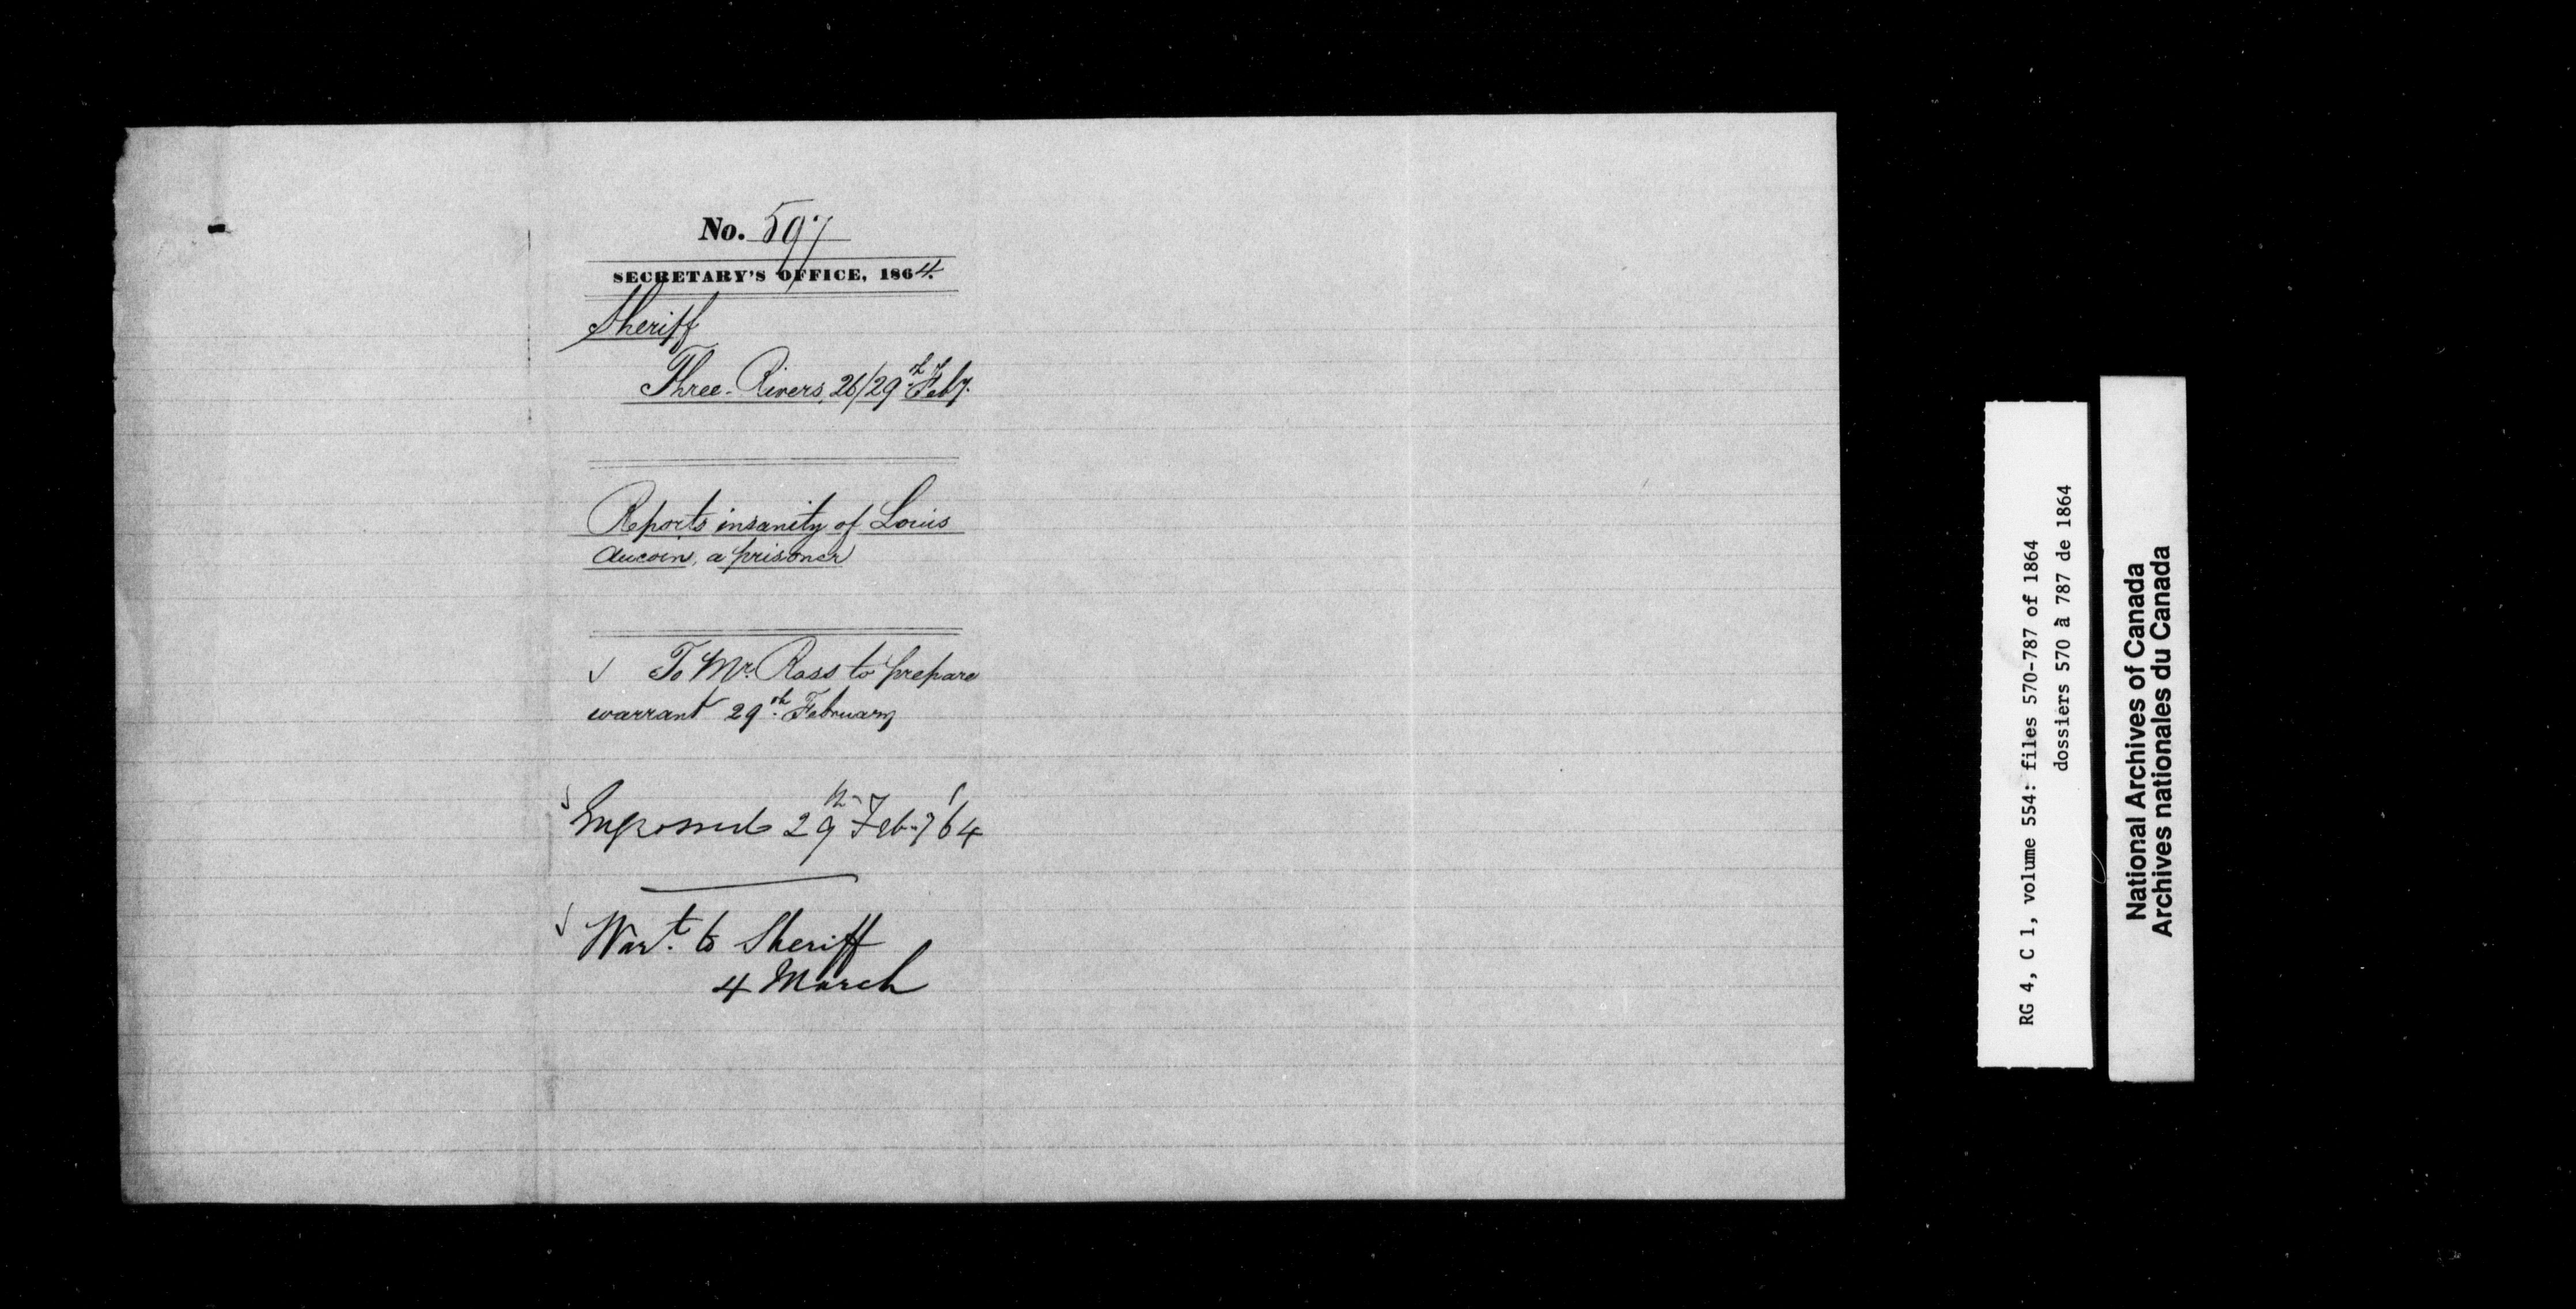 No. 597
SECRETARY'S OFFICE, 1864.
Sheriff
Three-Rivers, 26/29th Feby.
Reports insanity of Louis
Aucoin, a prisoner
✓ To Mr. Ross to prepare
warrant 29th. February
✓ Engrossed 29th Feby '64
✓ Wart. to Sheriff
4 March
RG 4, C 1, volume 554: files 570-787 of 1864
dossiers 570 à 787 de 1864
National Archives of Canada
Archives nationales du Canada